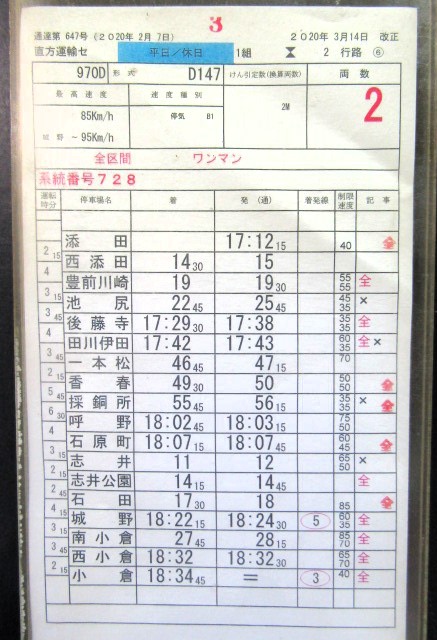 3
運達第 647号 (2020年 2月 7日) 2020年 3月14日 改正
直方運輸セ 平日/休日 1組 2 行路 ⑥
970D 形式 D147 けん引定数(換算両数) 両数
最高速度 速度種別 2M 2
85Km/h 停気 B1
城野 ~ 95Km/h
全区間 ワンマン
系統番号728
運転時分 停車場名 着 発(通) 着発線 制限速度 記事
添田 17:12 15 40 全
2 15 西添田 14 30 15
4 豊前川崎 19 19 30 55 55 全
3 15 池尻 22 45 25 45 45 35 ×
3 45 後藤寺 17:29 30 17:38 35 35 全
4 田川伊田 17:42 17:43 60 35 全 ×
3 45 一本松 46 45 47 15 70
2 15 香春 49 30 50 50 50 全
5 45 採銅所 55 45 56 15 35 35 × 全
6 30 呼野 18:02 45 18:03 15 75 50
4 石原町 18:07 15 18:07 45 60 45 全
3 15 志井 11 12 65 50 ×
2 15 志井公園 14 15 14 45 全
2 45 石田 17 30 18 85 全
4 15 城野 18:22 15 18:24 30 5 60 35 全
3 15 南小倉 27 45 28 15 85 70 全
3 45 西小倉 18:32 18:32 30 65 70 全
2 15 小倉 18:34 45 = 3 40 全